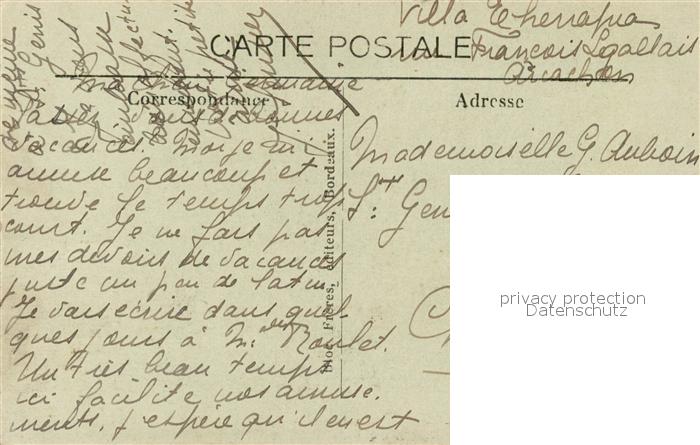 Villa Therapia
François Legallais
Arcachon
CARTE POSTALE
Correspondance
Adresse
Ma bien Germaine
Passes vous de bonnes
vacances. Moi je m'
amuse beaucoup et
trouve le temps trop
court. Je ne fais pas
mes devoirs de vacances
juste un peu de latin
Je vais écrire dans quel-
ques jours à Mlle Roulet.
Un très beau temps
ici facilite nos amuse.
ments. J'espère qu'il en est
de même
St Genis
Mademoiselle G. Auboin
St: Gen
Bloc Frères, éditeurs, Bordeaux.
privacy protection
Datenschutz